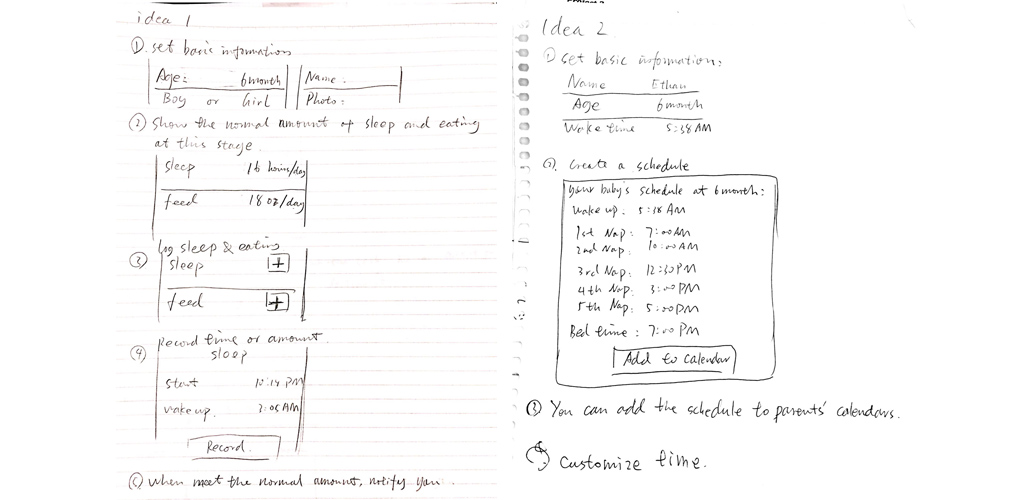 idea 1
① set basic information
Age: 6 month
Boy or Girl
Name:
Photo:
② Show the normal amount of sleep and eating
at this stage
sleep 16 hours/day
feed 18 oz/day
③ log sleep & eating
sleep +
feed +
④ Record time or amount
sleep
start 10:14 PM
wake up. 2:05 AM
Record.
when meet the normal amount, notify you.
Idea 2
① set basic information:
Name Ethan
Age 6 month
Wake time 5:38 AM
②. Create a schedule
your baby's schedule at 6 month:
Wake up: 5:18 AM
1st Nap: 7:00 AM
2nd Nap: 10:00 AM
3rd Nap: 12:30 PM
4th Nap: 3:00 PM
5th Nap: 5:00 PM
Bed time: 7:00 PM
Add to Calendar
③ You can add the schedule to parents' calendars.
Customize time.